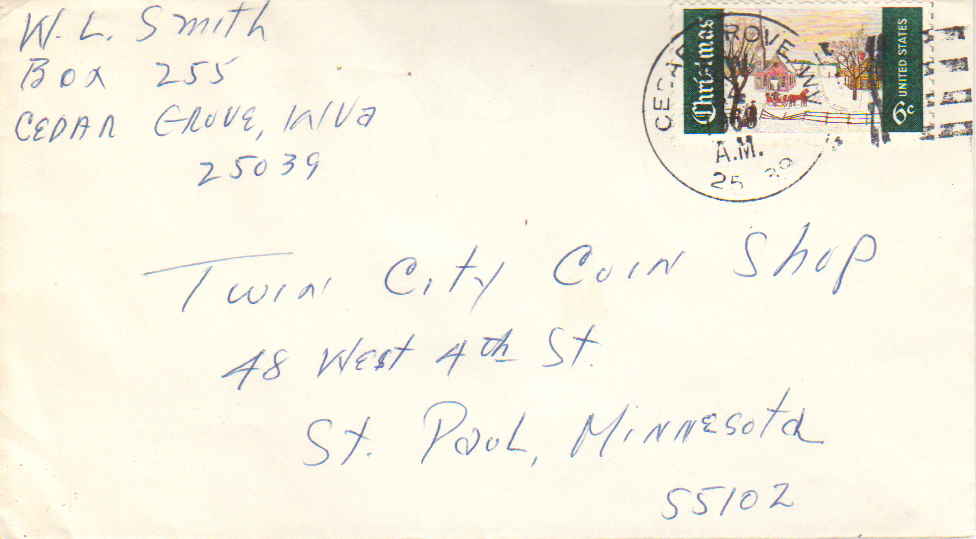 W. L. Smith
Box 255
CEDAR GROVE, WVa
25039
CEDAR GROVE, WV
A.M.
25
Christmas
UNITED STATES
6c
Twin City Coin Shop
48 West 4th St.
St. Paul, Minnesota
55102